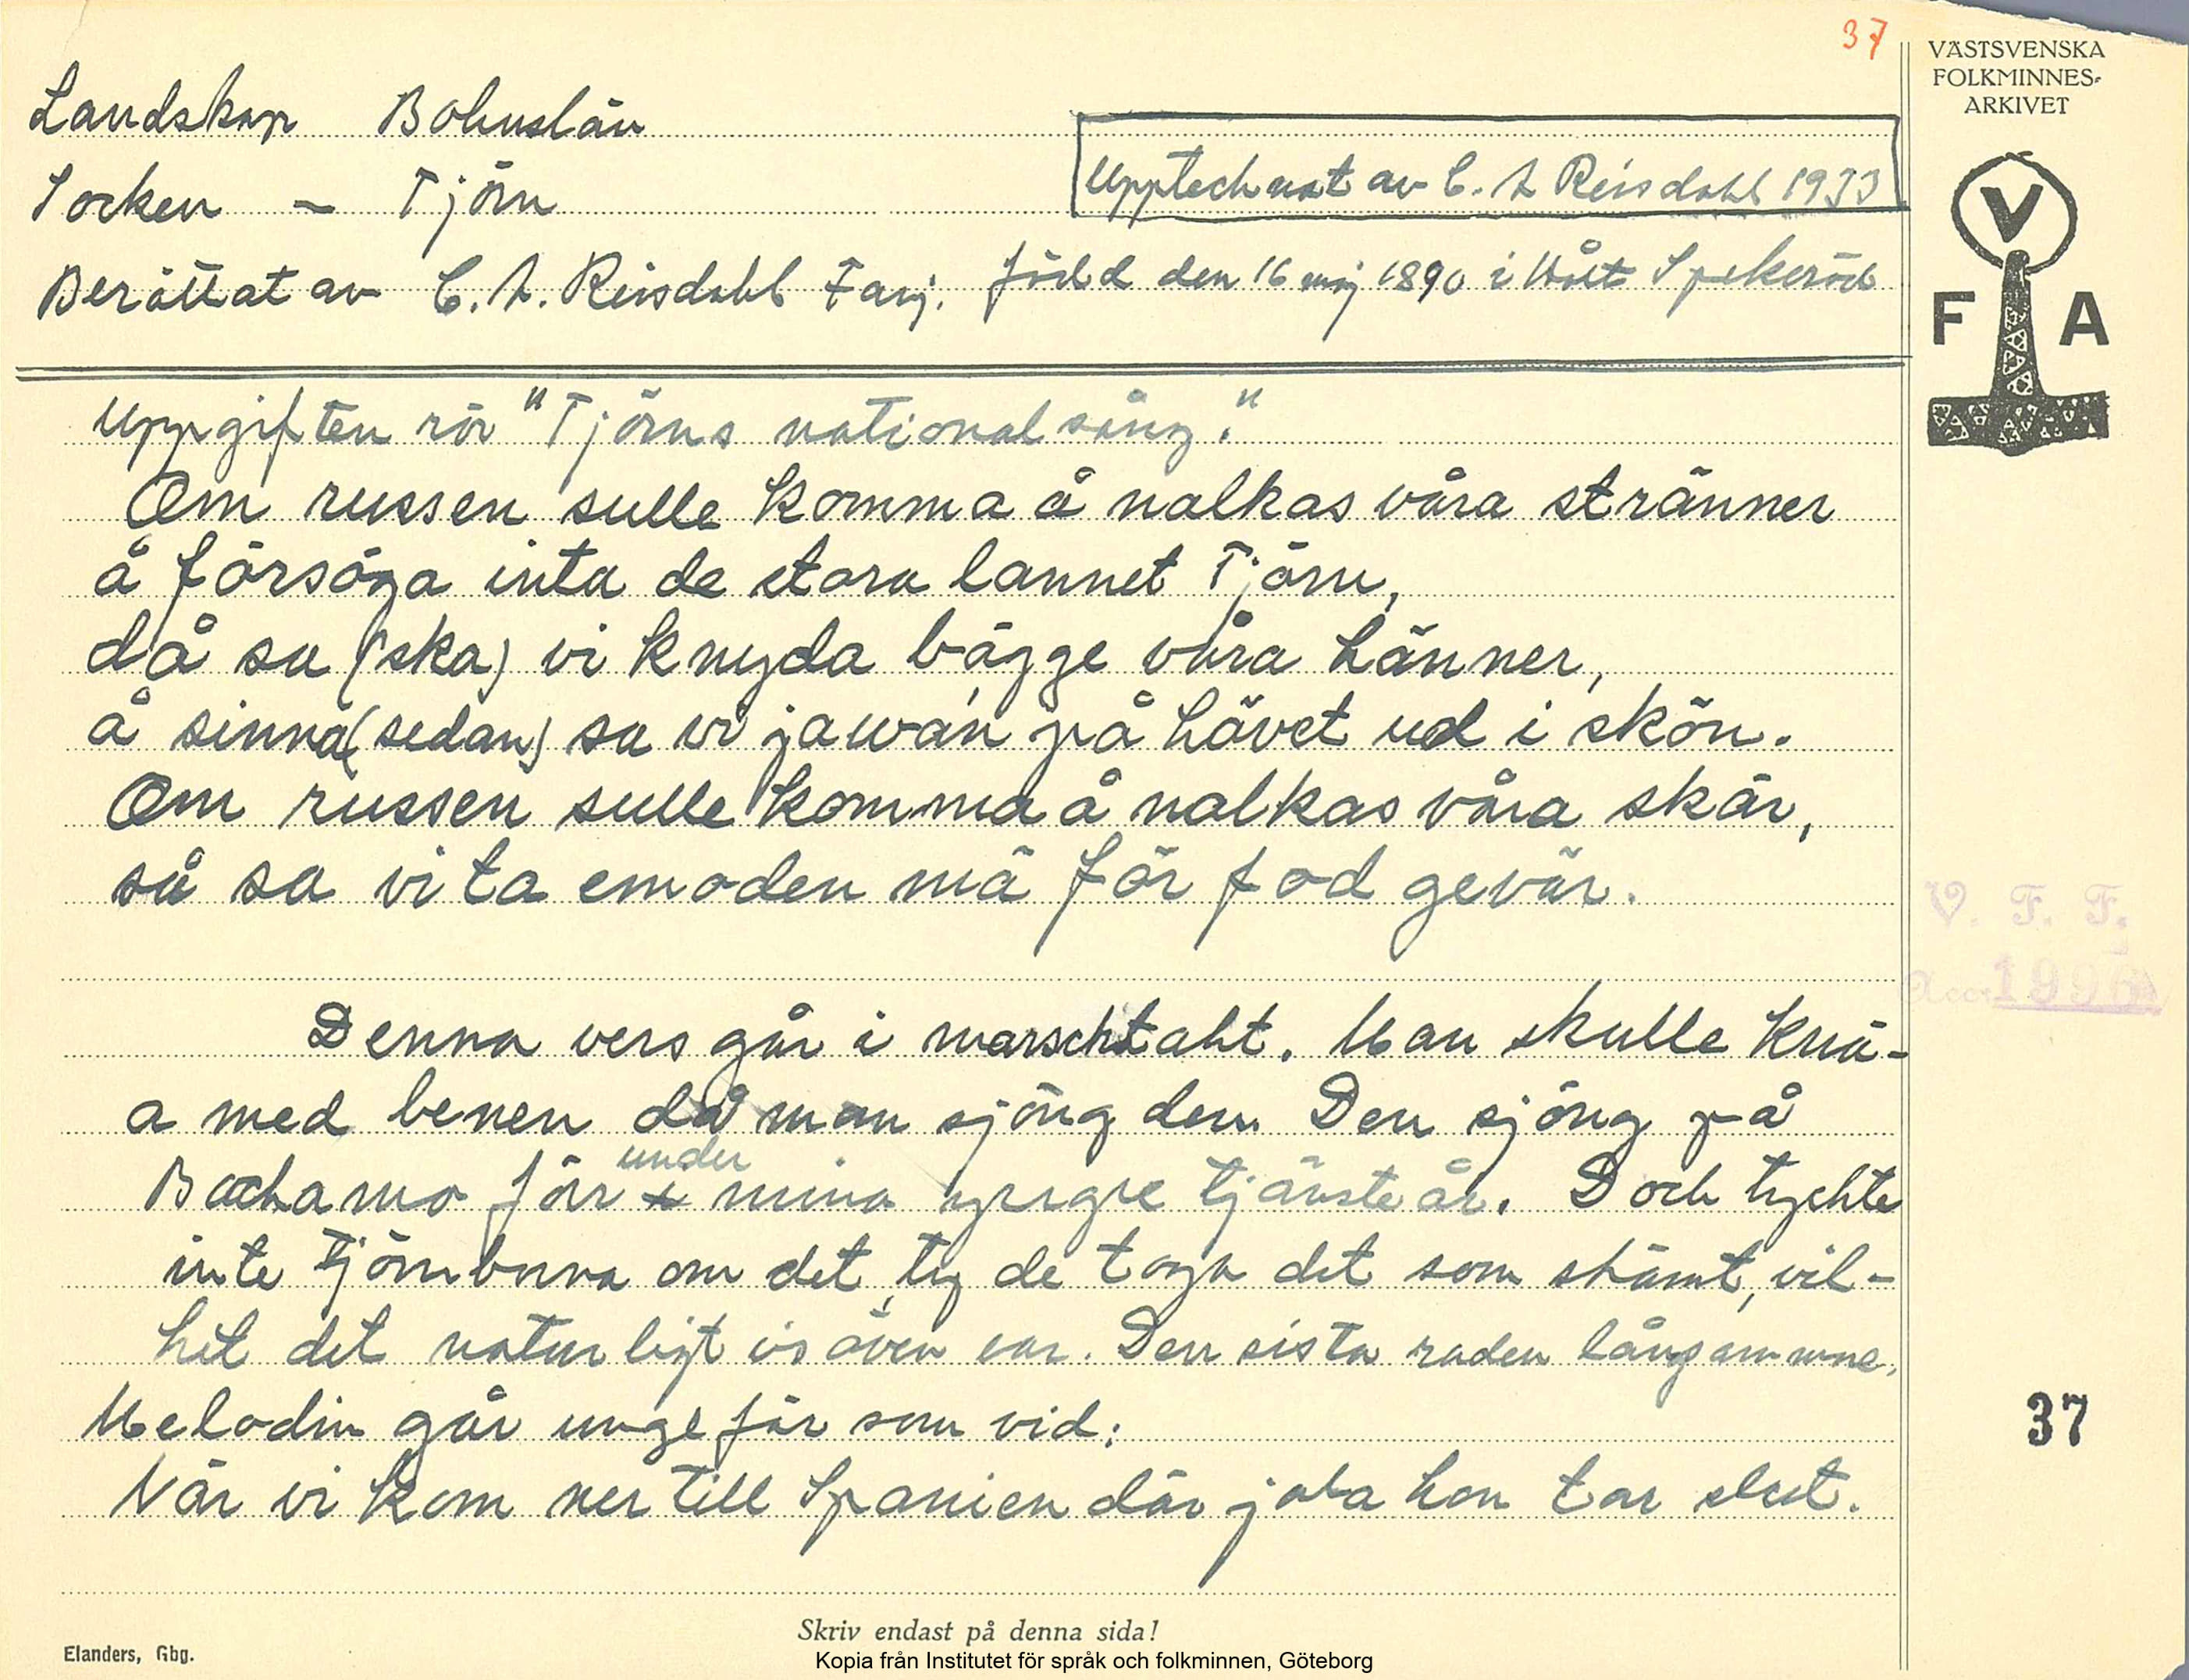 37
VÄSTSVENSKA
FOLKMINNES-
ARKIVET
Landskap Bohuslän
Upptechnat av C. A Reisdahl 1933
Socken - Tjörn
Berättat av C. A. Reisdahl Fanj. född den 16 maj 1890 i Spekeröd
V
F A
Uppgiften rör "Tjörns nationalsång."
Om russen sulle komma å nalkas våra stränner
å försöga inta de stora lannet Tjörn,
då sa (ska) vi knyda bägge våra hänner,
å sinna (sedan) sa vi jawan på hävet ud i skön.
Om russen sulle komma å nalkas våra skär,
så sa vi ta emoden mä för fod gevär.
V. F. F.
Acc. 1996
Denna vers går i marschtakt. Man skulle knä-
a med benen då man sjöng den. Den sjöng på
Backamo förr under mina yngre tjänsteår. Doch tychte
inte Tjörnborna om det, ty de toga det som skämt, vil-
ket det naturligtvis även var. Den sista raden långsamme.
Melodin går ungefär som vid:
37
När vi kom ner till Spanien där jaba hon tar slut.
Skriv endast på denna sida!
Elanders, Gbg.
Kopia från Institutet för språk och folkminnen, Göteborg